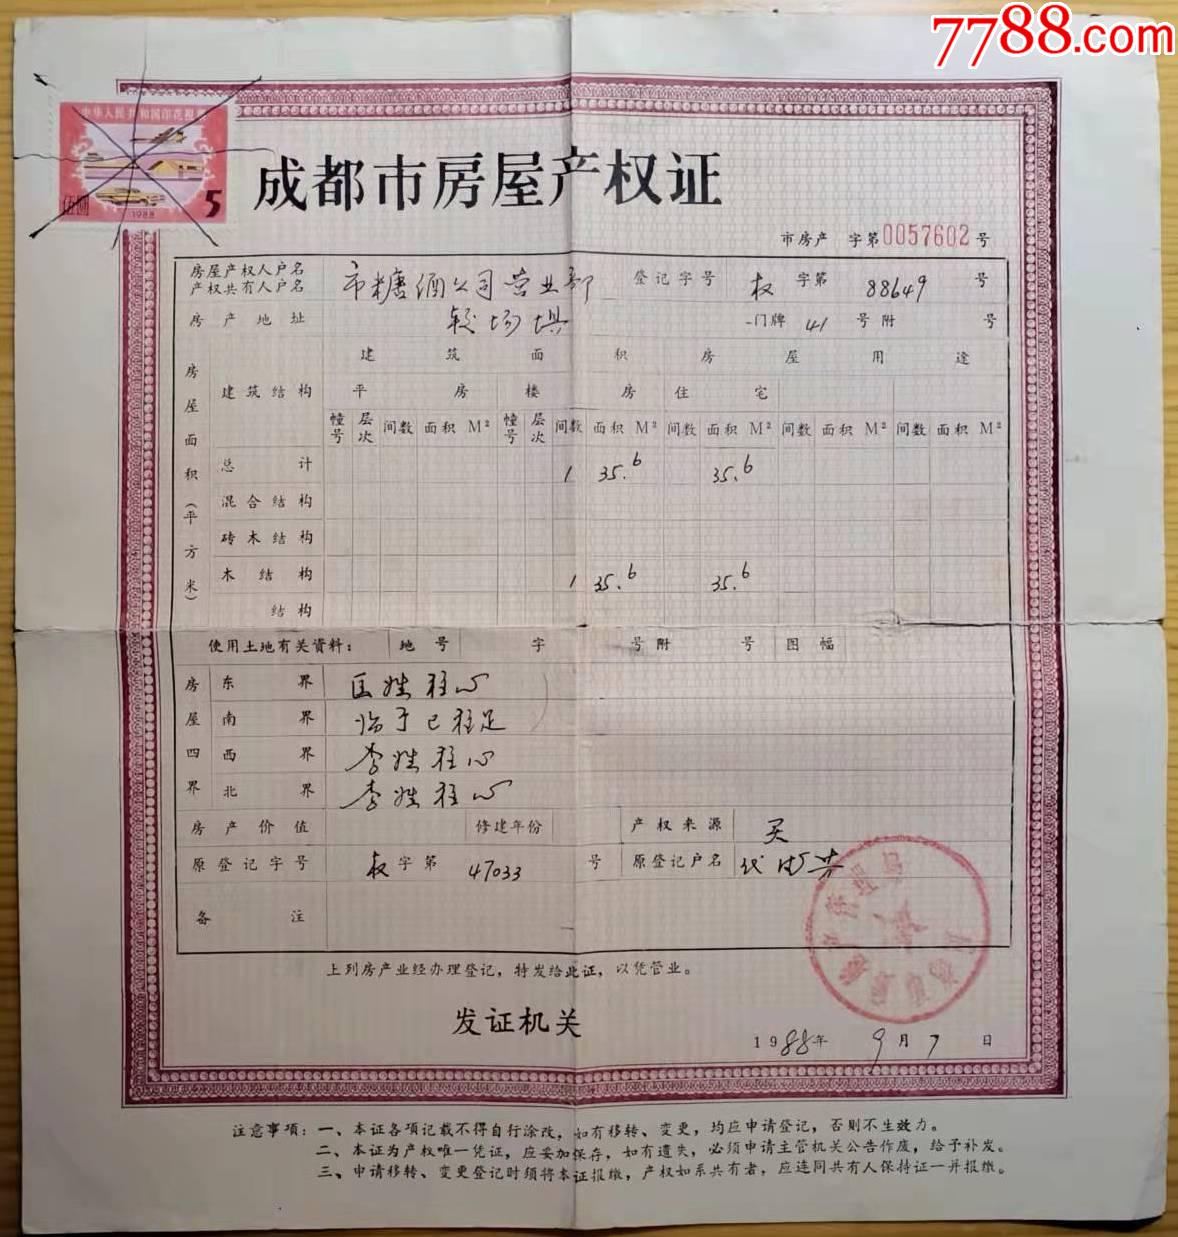 7788.com
中华人民共和国印花税票
伍圆 1988 5
成都市房屋产权证
市房产 字第0057602号
房屋产权人户名
产权共有人户名
市糖酒公司营业部
登记字号 权 字第 88649 号
房产地址 较场坝 门牌 41 号附 号
房屋面积(平方米)
建筑结构
建筑面积 房屋用途
平房 楼房 住宅
幢号 层次 间数 面积 M² 幢号 层次 间数 面积 M² 间数 面积 M² 间数 面积 M² 间数 面积 M²
总计 1 35.6 35.6
混合结构
砖木结构
木结构 1 35.6 35.6
结构
使用土地有关资料: 地号 字 号附 号 图幅
房屋四界
东界 匡姓柱心
南界 临于己柱足
西界 李姓柱心
北界 李姓柱心
房产价值 修建年份 产权来源 买
原登记字号 权字第 47033 号 原登记户名
备注
上列房产业经办理登记，特发给此证，以凭管业。
发证机关
1988年 9月 7日
注意事项：一、本证各项记载不得自行涂改，如有移转、变更，均应申请登记，否则不生效力。
二、本证为产权唯一凭证，应妥加保存，如有遗失，必须申请主管机关公告作废，给予补发。
三、申请移转、变更登记时须将本证报缴，产权如系共有者，应连同共有人保持证一并报缴。